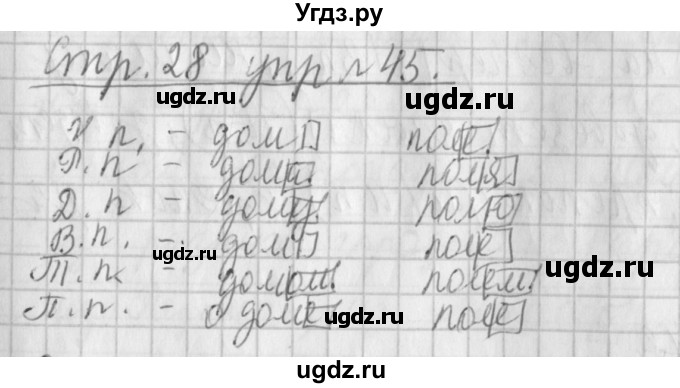 Угдз.ру
Стр. 28 упр № 45.
ugdz.ru ugdz.ru
И п. - дом поле.
Р. п - дома. поля
ugdz.ru
Д. п - дому. полю
ugdz.ru
В. п. - дом поле
ugdz.ru
Т. п. - домом. полем.
ugdz.ru
П. п. - о доме поле
ugdz.ru
Угдз.ру